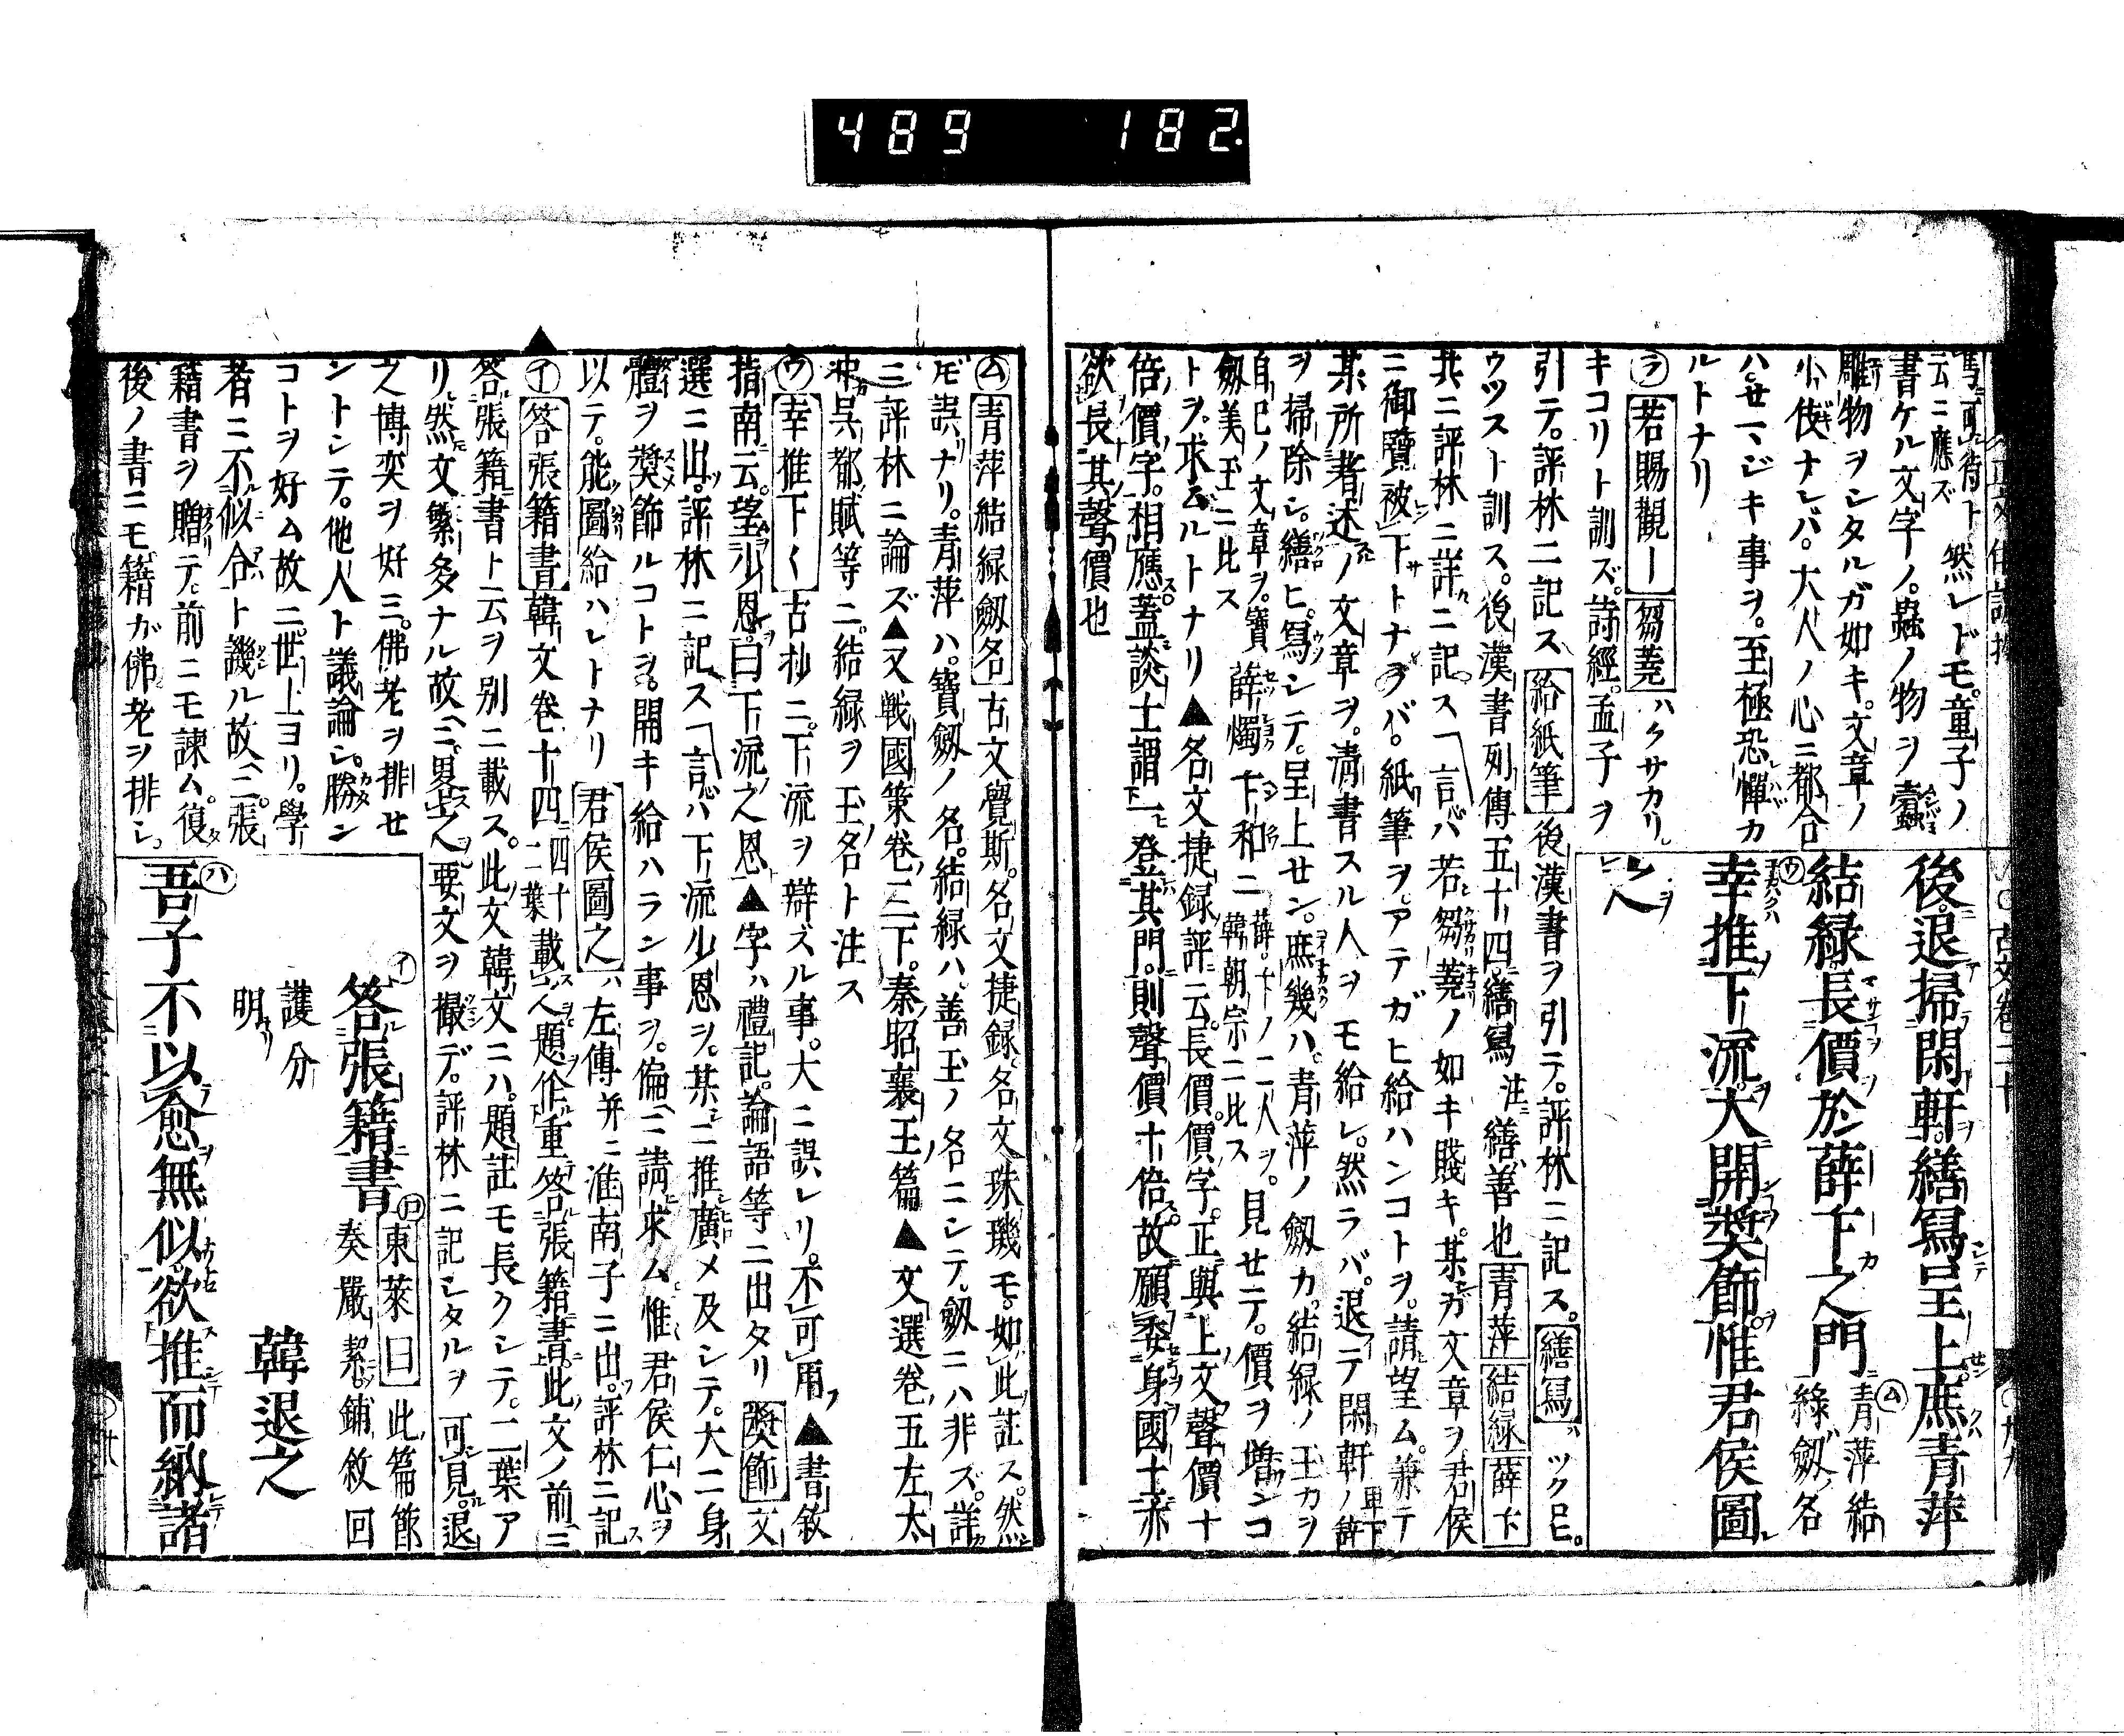 489 182.
云ニ應ズ 然レドモ童子ノ
書ケル文字ノ蟲ノ物ヲ蠧
雕物ヲシタルガ如キ文章ノ
小伎ナレバ大人ノ心ニ都合
ハセマジキ事ヲ至極恐憚カ
ルトナリ
ヲ若賜觀ー 芻蕘ハクサカリ
キコリト訓ズ詩經孟子ヲ
後退掃閑軒繕寫呈上庶青萍
結緑長價於薛卞之門 青萍結緑劔名
幸推下流大開奬飾惟君侯圖
之
引テ評林ニ記ス 給紙筆 後漢書ヲ引テ評林ニ記ス 繕寫ハツクロヒ
ウツスト訓ス後漢書列傳五十四繕寫 注 繕善也 青萍 結緑 薛卞
共ニ評林ニ詳ニ記ス 言バ若芻蕘ノ如キ賤キ某ガ文章ヲ君侯
ニ御覽被下トナラバ紙筆ヲアテガヒ給ハンコトヲ請望ム兼テ
某所著述ノ文章ヲ清書スル人ヲモ給レ然ラバ退テ閑軒ノ
ヲ掃除シ繕ヒ寫シテ呈上セン庶幾ハ青萍ノ劔カ結緑ノ玉カヲ
自已ノ文章ヲ寶劔美玉ニ比ス 薛燭卞和ニ 薛卞ノ二人ヲ韓朝宗ニ比ス 見セテ價ヲ増ンコ
トヲ求ムルトナリ▲名文捷録評云長價價字正與上文聲價十
倍價字相應蓋談士謂一登其門則聲價十倍故願委身國士亦
欲長其聲價也
ム青萍結緑劔名 古文覺斯名文捷録名文珠璣モ如此註ス然
モ誤ナリ青萍ハ寶劔ノ名結緑ハ善玉ノ名ニシテ劔ニハ非ズ詳
ニ評林ニ論ズ▲又戰國策卷三下秦昭襄王篇▲文選卷五左太
冲呉都賦等ニ結緑ヲ玉名ト注ス
ウ幸推下〱 古抄ニ下流ヲ辯ズル事大ニ誤レリ不可用▲書敘
指南云望少恩曰下流之恩▲字ハ禮記論語等ニ出タリ 奬飾 文
選ニ出評林ニ記ス 言バ下流少恩ヲ某ニ推廣メ及シテ大ニ身
體ヲ奬飾ルコトヲ開キ給ハラン事ヲ偏ニ請求ム惟君侯仁心ヲ
以テ能圖給ハレトナリ 君侯圖之ハ左傳并ニ淮南子ニ出評林ニ記ス
イ答張籍書 韓文卷十四 四十二葉載 題作重答張籍書此文ノ前ニ
答張籍書ト云ヲ別ニ載ス此文韓文ニハ題註モ長クシテ二葉ア
リ然文繁多ナル故ニ畧之要文ヲ撮デ評林ニ記シタルヲ可見退
之博奕ヲ好ミ佛老ヲ排セ
ントシテ他人ト議論シ勝ン
コトヲ好ム故ニ世上ヨリ學
者ニ不似合ト譏ル故ニ張
籍書ヲ贈テ前ニモ諫ム復
後ノ書ニモ籍ガ佛老ヲ排シ
答張籍書 東萊曰 此篇節奏嚴絜鋪敘回
護分明
韓退之
吾子不以愈無似欲推而納諸